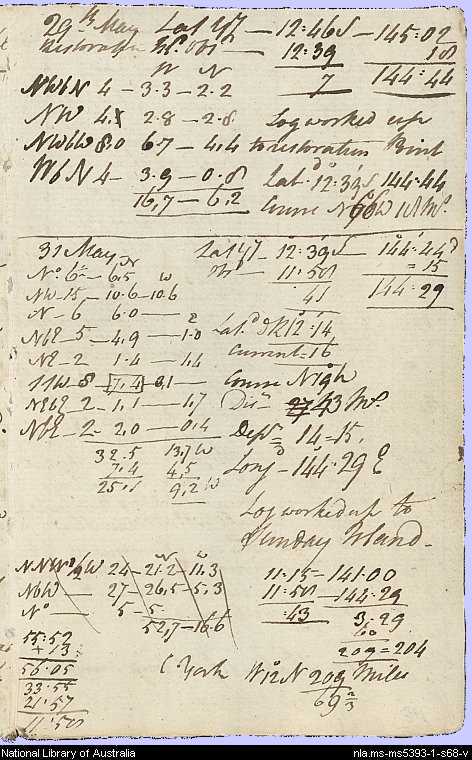 29th May Lat 27 — 12:46S — 145:02
Restoration Ed Obs — 12:39 18
7 144:44
W N
NWbN 4 — 3.3 — 2.2
NW 4. — 2.8 — 2.8 Log worked up
NWbW 8.0 6.7 — 4,4 to restoration Point
WbN 4 — 3.9 — 0.8 Lat d 12:39S 144:44
16,7 — 6,2 Course N 70 W 18 Ms.
31 May Lat 27 — 12:39S — 144:44
N W 11:58 = 15
No 6 — 6.5 41 144:29
NW — 15 — 10.6 — 10.6
N — 6 6.0 — E
NbE — 5 — 4,9 — 1.0 Lat. d R 12:14
NE — 2 1.4 — 1,4 Current = 16
SSW — 8 — 7,4 — 3,1 — Course Nigh
NEbE — 2 — 1,1 — 1,7 Disce 43 Ms.
NbE — 2 — 2,0 — 0,4 Depr = 14 = 15,
32.5 13,7 W Long — 144:29 E
7,4 4,5
25,1 9,2 W
Log worked up to
Sunday Island.
NNW 1/2 W 24 — 21.2 — 11.3 11:15 — 141.00
NbW — 27 — 26,5 — 5,3 11:58 — 144.29
No — 5 — 5 :43 3,29
52,7 — 16.6 60
55:52 209 = 204
+ 13
56:05 C York W 12 N 209 Miles
33:55 69 2/3
21:57
11:58
National Library of Australia nla.ms-ms5393-1-s68-v